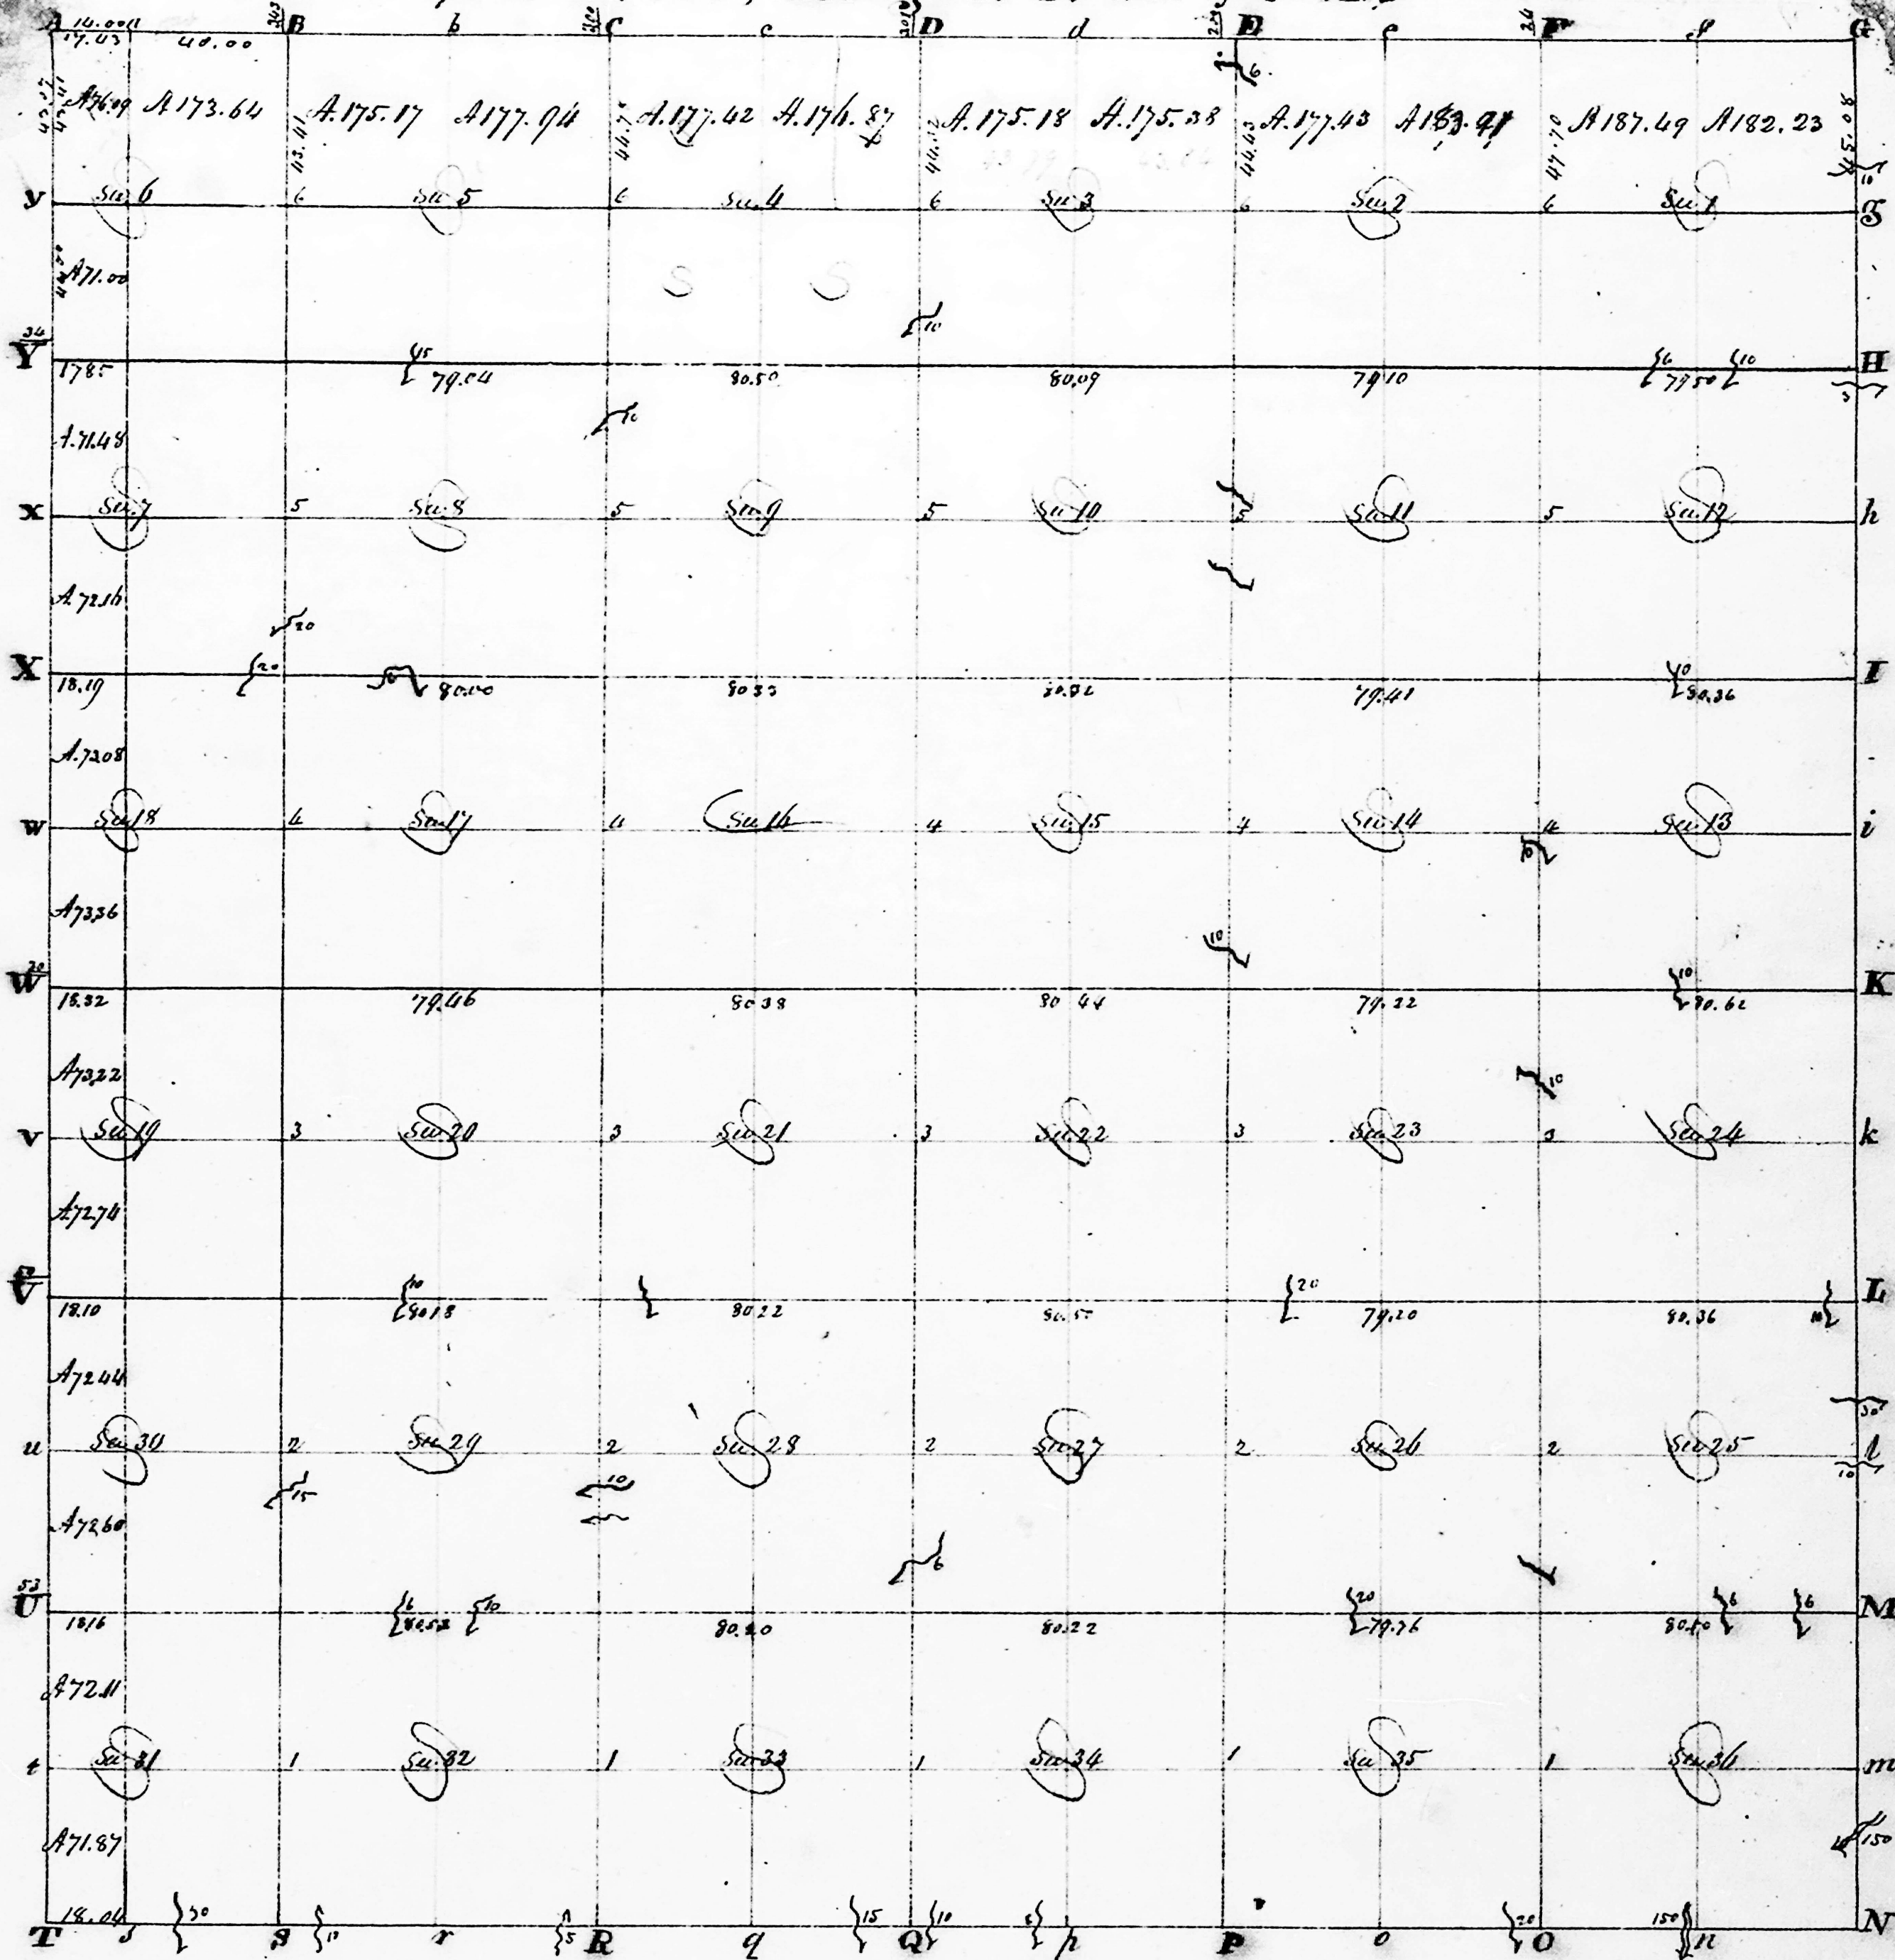 A 14.00 B b C c D d E e F f G
17.43 40.00
6
A76.09 A173.64 A.175.17 A177.94 A.177.42 A.176.87 A.175.18 A.175.38 A.177.43 A183.91 A187.49 A182.23
43.41 44.43 47.70 45.08
10
y Sec 6 6 Sec 5 6 Sec. 4 6 Sec 3 6 Sec 2 6 Sec 1
A71.00
10
34
Y 15 6 10 H
1785 79.04 80.50 80.09 79.10 79.50
3
10
A.71.48
x Sec. 7 5 Sec. 8 5 Sec. 9 5 Sec 10 5 Sec 11 5 Sec. 12 h
A.72.16
20
X 20 10 I
18.19 80.00 80.33 79.41 80.36
A.7208
w Sec 18 4 Sec 17 4 Sec. 16 4 Sec. 15 4 Sec 14 4 Sec 13 i
A7336
10
W 10 K
18.32 79.46 80 38 80 44 79.22 80.62
A7322
10
v Sec 19 3 Sec 20 3 Sec. 21 3 Sec. 22 3 Sec 23 3 Sec 24 k
A7274
V 10 20 L
18.10 80.18 80 22 79.20 80.36 10
A7244
30
u Sec 30 2 Sec. 29 2 Sec. 28 2 Sec. 27 2 Sec 26 2 Sec 25 l
10
15 10
A7260
6
53
U 6 10 20 6 6 M
1816 80.52 80.20 80.22 79.76
A72.11
t Sec 31 1 Sec. 32 1 Sec. 33 1 Sec 34 1 Sec 35 1 Sec. 36 m
A71.87
150
18.04 30 15 10 20 150
T s S r 5 R q Q p P o O n N